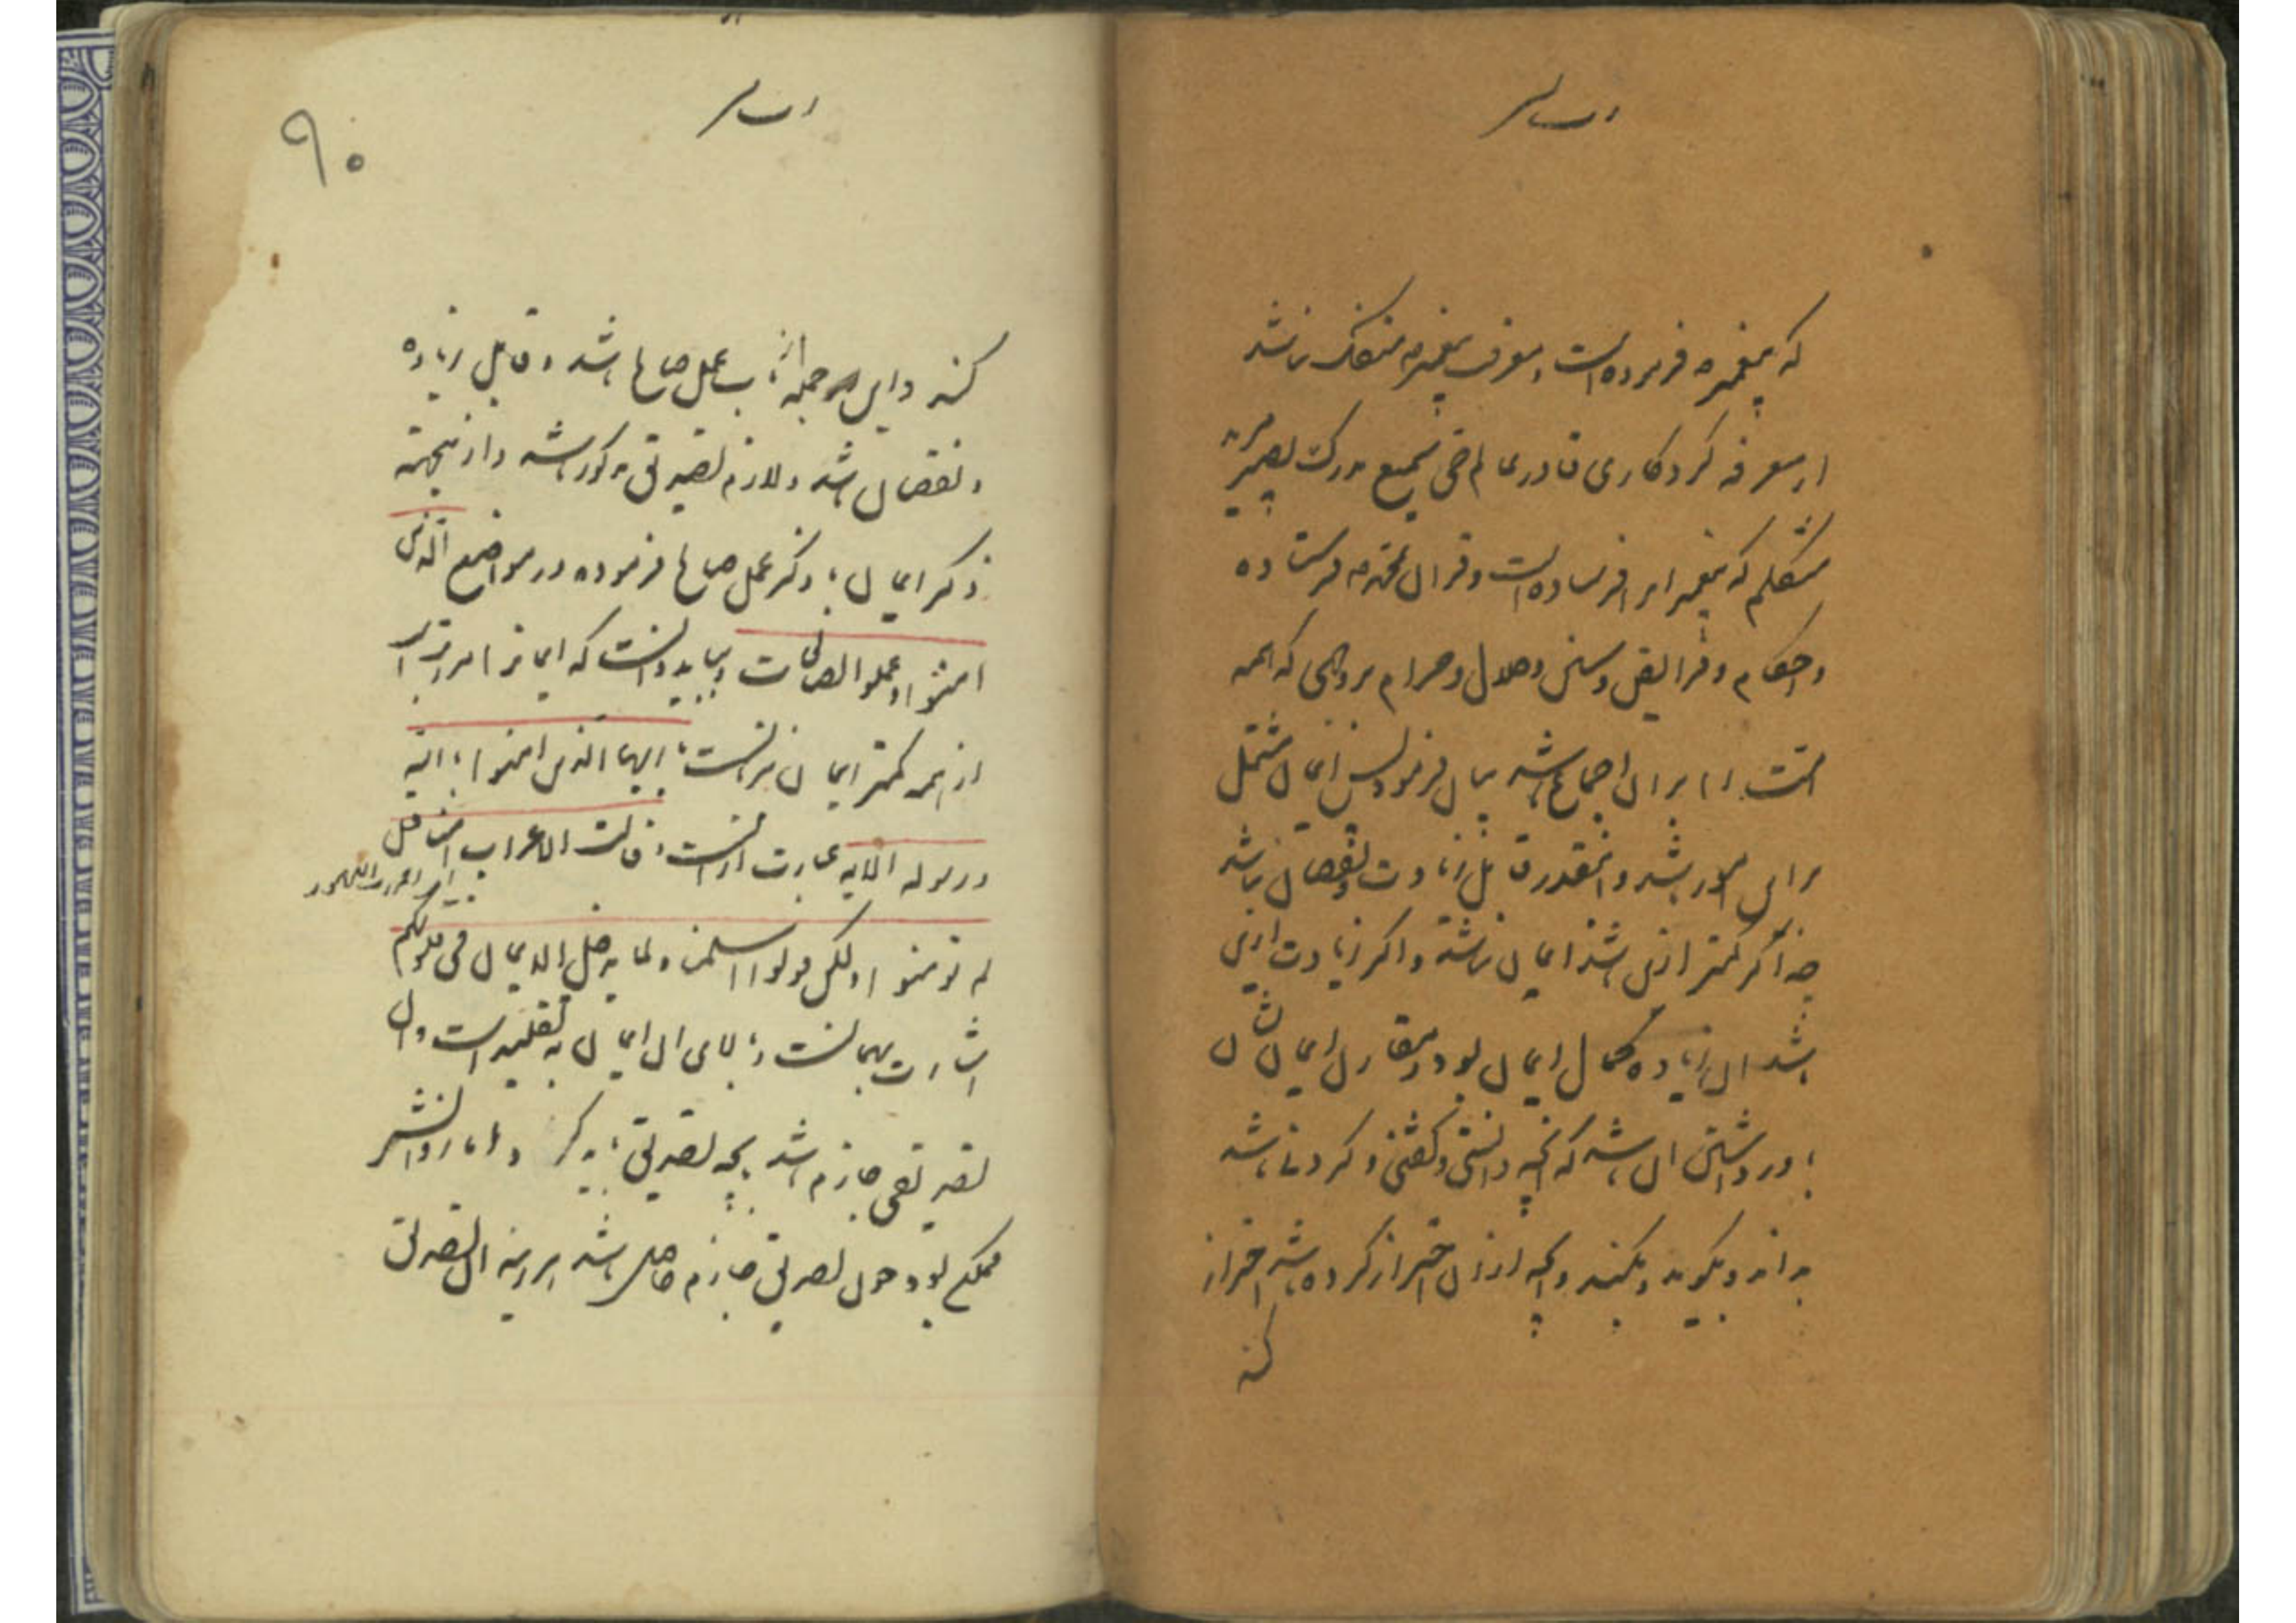 که پیغمبر فرموده است و معرفت پیغمبر منفک نباشد
از معرفه کردکاری قادر عالم حی سمیع مدرک بصیر مرید
متکلم که پیغمبرانرا فرستاده است و قران بمحمد فرستاده
و احکام و فرایض و سنن و حلال و حرام بر وجهی که همه
امت را بران اجماع باشد بیان فرمود پس ایمان مشتمل
برین امور باشد و اینقدر قابل زیادت و نقصان نباشد
چه اگر کمتر ازین باشد ایمان نباشد و اگر زیادت ازین
باشد آن زیاده کمال ایمان بود و مقارن ایمان و نشان
باور داشتن آن باشد که آنچه دانستنی و گفتنی و کردنی باشد
بداند و بگوید و بکند و آنچه ازان احتراز کرده باشد احتراز
کند
۹۰
کند و این جمله از باب عمل صالح باشد و قابل زیاده
و نقصان باشد و لازم تصدیق مذکور باشد و ازینجهته
ذکر ایمان با ذکر عمل صالح فرموده در مواضع الذین
امنوا و عملوا الصالحات و بباید دانست که ایمانرا مراتب
از همه کمتر ایمان بزبانست یا ایها الذین امنوا امنوا بالله
و رسوله الایه عبارت از انست و قالت الاعراب امنا قل
لم تومنوا و لکن قولوا اسلمنا و لما یدخل الایمان فی قلوبکم
اشارت بهمانست و بالای آن ایمان به تقلید است و ان
تصدیقی جازم باشد بآنچه تصدیق باید کرد و اما زوالش
ممکن بود و چون تصدیق جازم حاصل باشد هراینه آن تصدیق